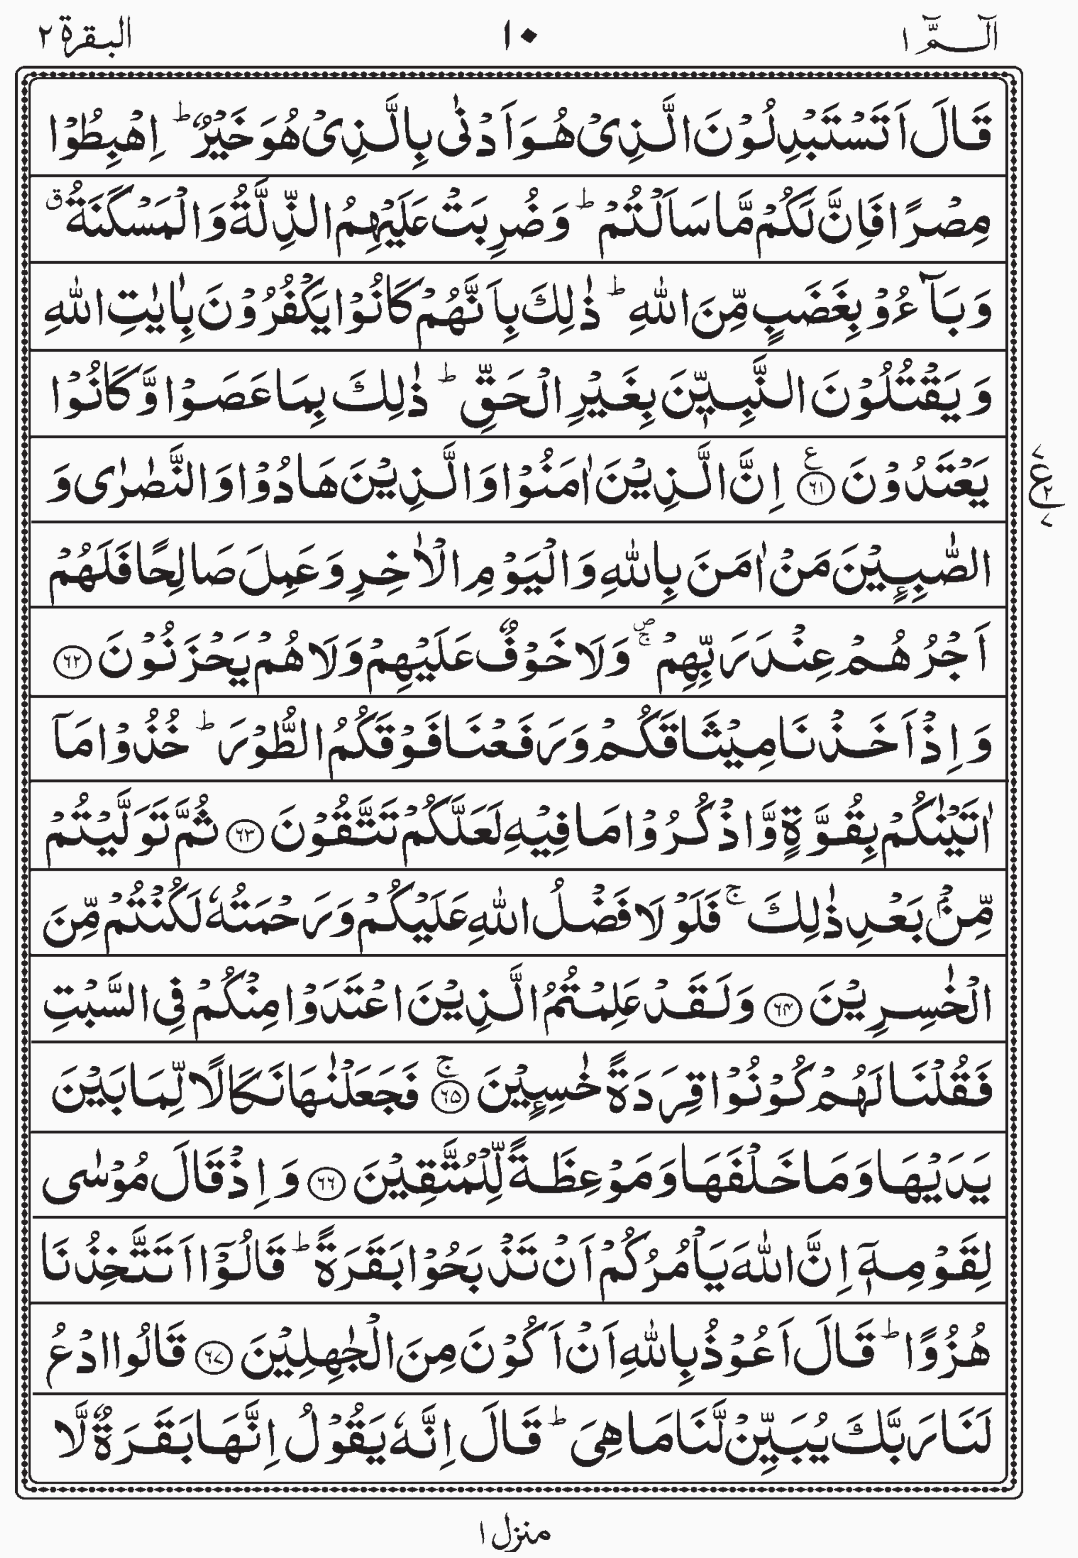 الٓـمّٓ ١ ١٠ البقرة ٢
قَالَ اَتَسْتَبْدِلُوْنَ الَّذِیْ هُوَ اَدْنٰی بِالَّذِیْ هُوَ خَیْرٌ ؕ اِهْبِطُوْا
مِصْرًا فَاِنَّ لَكُمْ مَّا سَاَلْتُمْ ؕ وَ ضُرِبَتْ عَلَیْهِمُ الذِّلَّةُ وَ الْمَسْكَنَةُ ۗ
وَ بَآءُوْ بِغَضَبٍ مِّنَ اللّٰهِ ؕ ذٰلِكَ بِاَنَّهُمْ كَانُوْا یَكْفُرُوْنَ بِاٰیٰتِ اللّٰهِ
وَ یَقْتُلُوْنَ النَّبِیّٖنَ بِغَیْرِ الْحَقِّ ؕ ذٰلِكَ بِمَا عَصَوْا وَّ كَانُوْا
یَعْتَدُوْنَ ﴿۶۱﴾ ع اِنَّ الَّذِیْنَ اٰمَنُوْا وَ الَّذِیْنَ هَادُوْا وَ النَّصٰرٰی وَ
ع ٧ ٢ ٧
الصّٰبِـِٕیْنَ مَنْ اٰمَنَ بِاللّٰهِ وَ الْیَوْمِ الْاٰخِرِ وَ عَمِلَ صَالِحًا فَلَهُمْ
اَجْرُهُمْ عِنْدَ رَبِّهِمْ ۚ ص وَ لَا خَوْفٌ عَلَیْهِمْ وَ لَا هُمْ یَحْزَنُوْنَ ﴿۶۲﴾
وَ اِذْ اَخَذْنَا مِیْثَاقَكُمْ وَ رَفَعْنَا فَوْقَكُمُ الطُّوْرَ ؕ خُذُوْا مَاۤ
اٰتَیْنٰكُمْ بِقُوَّةٍ وَّ اذْكُرُوْا مَا فِیْهِ لَعَلَّكُمْ تَتَّقُوْنَ ﴿۶۳﴾ ثُمَّ تَوَلَّیْتُمْ
مِّنْۢ بَعْدِ ذٰلِكَ ۚ فَلَوْ لَا فَضْلُ اللّٰهِ عَلَیْكُمْ وَ رَحْمَتُهٗ لَكُنْتُمْ مِّنَ
الْخٰسِرِیْنَ ﴿۶۴﴾ وَ لَقَدْ عَلِمْتُمُ الَّذِیْنَ اعْتَدَوْا مِنْكُمْ فِی السَّبْتِ
فَقُلْنَا لَهُمْ كُوْنُوْا قِرَدَةً خٰسِـِٕیْنَ ﴿۶۵﴾ ۚ فَجَعَلْنٰهَا نَكَالًا لِّمَا بَیْنَ
یَدَیْهَا وَ مَا خَلْفَهَا وَ مَوْعِظَةً لِّلْمُتَّقِیْنَ ﴿۶۶﴾ وَ اِذْ قَالَ مُوْسٰی
لِقَوْمِهٖۤ اِنَّ اللّٰهَ یَاْمُرُكُمْ اَنْ تَذْبَحُوْا بَقَرَةً ؕ قَالُوْۤا اَتَتَّخِذُنَا
هُزُوًا ؕ قَالَ اَعُوْذُ بِاللّٰهِ اَنْ اَكُوْنَ مِنَ الْجٰهِلِیْنَ ﴿۶۷﴾ قَالُوا ادْعُ
لَنَا رَبَّكَ یُبَیِّنْ لَّنَا مَا هِیَ ؕ قَالَ اِنَّهٗ یَقُوْلُ اِنَّهَا بَقَرَةٌ لَّا
منزل ١